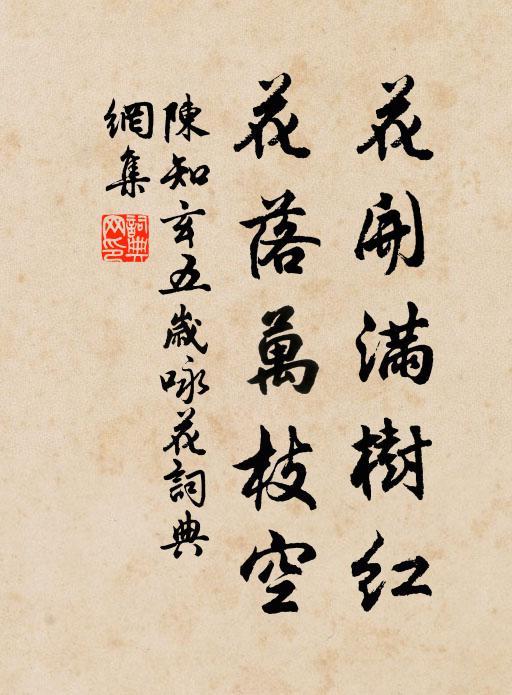 花開滿樹紅
花落萬枝空
陳知玄五歲咏花詞典
網集
詞典网印